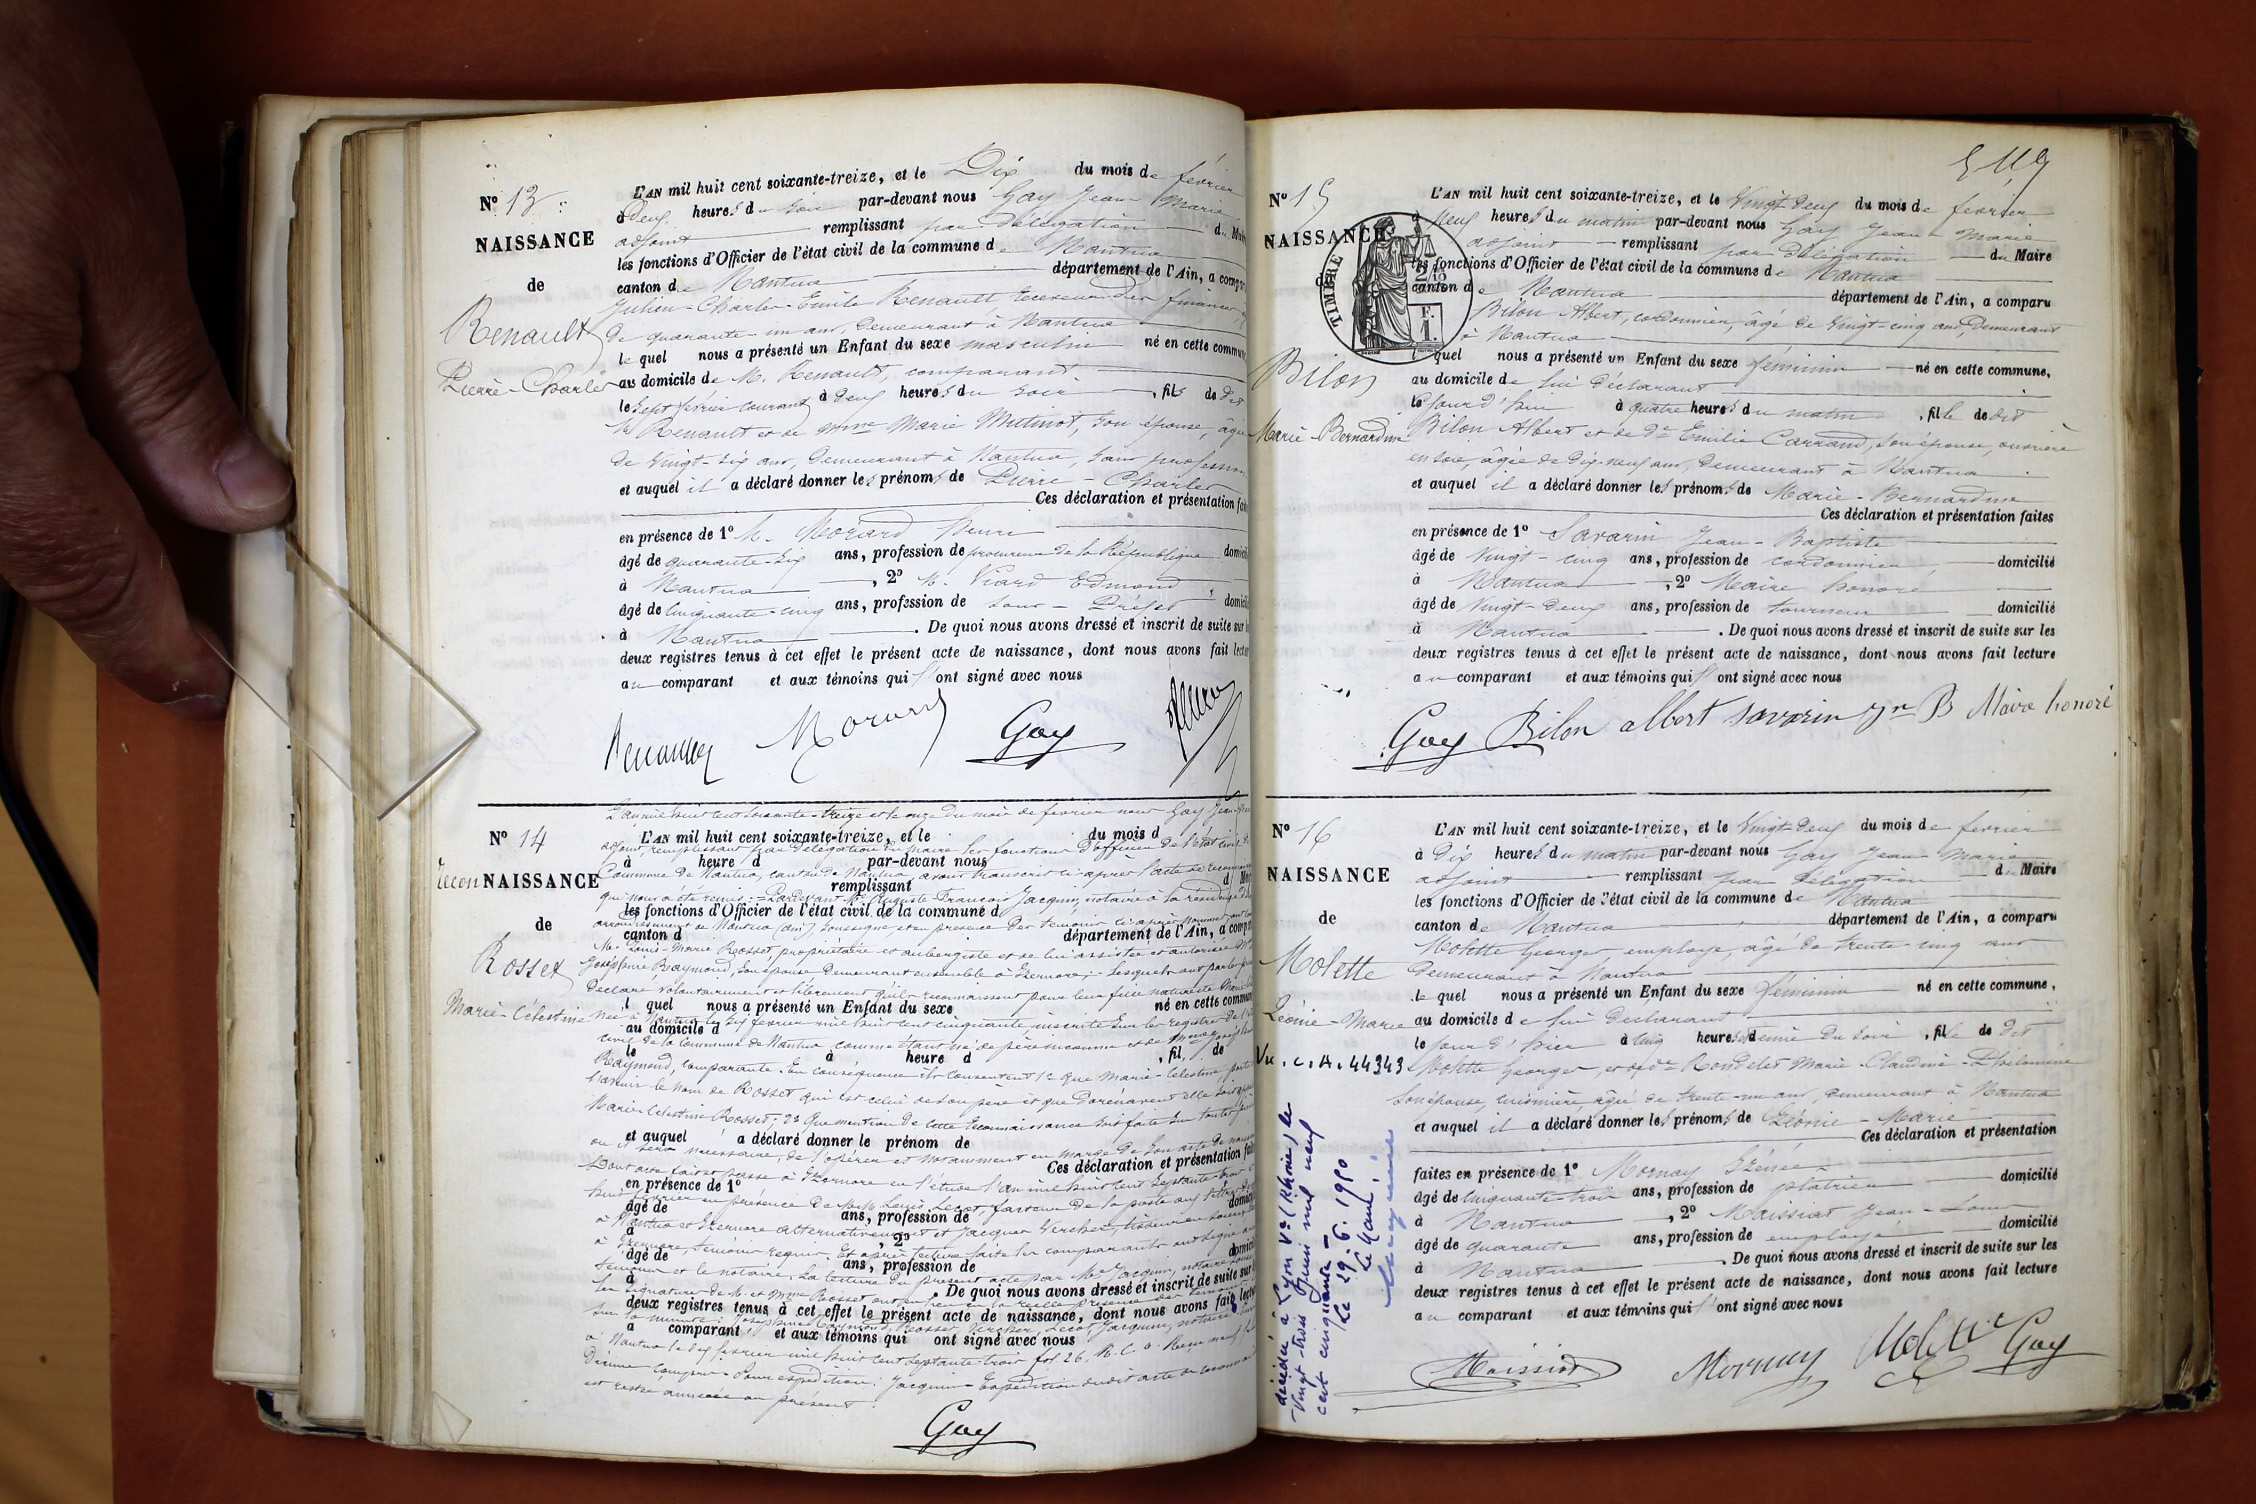 N° 13
NAISSANCE
de
Renault
Pierre-Charles
L'AN mil huit cent soixante-treize, et le Dix du mois de février
à Deux heures du soir par-devant nous Gay Jean Marie
adjoint remplissant par délégation du Maire
les fonctions d'Officier de l'état civil de la commune de Nantua
canton de Nantua département de l'Ain, a comparu
Julien-Charles-Emile Renault, Receveur des finances, âgé
de quarante-un ans, demeurant à Nantua
lequel nous a présenté un Enfant du sexe masculin né en cette commune
au domicile de M. Renault, comparant
le sept février courant à deux heures du soir, fils de dit
M. Renault et de Mme Marie Mutinot, son épouse, âgée
de vingt-six ans, demeurant à Nantua, sans profession
et auquel il a déclaré donner les prénoms de Pierre-Charles
Ces déclaration et présentation faites
en présence de 1° M. Morard Henri
âgé de quarante-six ans, profession de procureur de la République domicilié
à Nantua, 2° M. Viard Edmond
âgé de cinquante-cinq ans, profession de sous-Préfet domicilié
à Nantua. De quoi nous avons dressé et inscrit de suite sur les
deux registres tenus à cet effet le présent acte de naissance, dont nous avons fait lecture
au comparant et aux témoins qui ont signé avec nous
Morard Gay
N° 14
Recon NAISSANCE
de
Rosset
Marie-Célestine
L'année huit cent soixante-treize et le onze du mois de février nous Gay Jean-Marie
L'AN mil huit cent soixante-treize, et le du mois d
adjoint, remplissant par délégation du Maire les fonctions d'officier de l'état civil de la
à heure d par-devant nous
Commune de Nantua, canton de Nantua, avons transcrit ci-après l'acte de reconnaissance
remplissant d Maire
qui nous a été remis : Pardevant Me Auguste François Jacquin, notaire à la résidence d
les fonctions d'Officier de l'état civil de la commune d
arrondissement de Nantua (Ain), soussigné et en présence des témoins ci-après nommés, ont
canton d département de l'Ain, a comparu
M. Louis-Marie Rosset, propriétaire et aubergiste et de lui assistée et autorisée Mme
Joséphine Raymond, son épouse demeurant ensemble à Izernore ; lesquels ont par les présentes
déclaré volontairement et librement qu'ils reconnaissent pour leur fille naturelle Marie
l quel nous a présenté un Enfant du sexe né en cette commune
née à Nantua le dix février mil huit cent cinquante inscrite sur les registres de l'état
au domicile d
civil de la commune de Nantua, comme étant née de père inconnu et de
le à heure d, fil de
Raymond, comparante. En conséquence ils consentent 1° que Marie-Célestine porte
à l'avenir le nom de Rosset qui est celui de son père et que dorénavant elle soit
Marie-Célestine Rosset ; 2° que mention de cette reconnaissance soit faite sur toutes
et auquel a déclaré donner le prénom de
ou il sera nécessaire, de l'opérer et notamment en marge de son acte de naissance
Ces déclaration et présentation faites
Dont acte fait et passé à Izernore en l'étude l'an mil huit cent septante-trois
en présence de 1°
huit février en présence de Louis Lecot, facteur de la poste aux lettres
âgé de ans, profession de domicilié
à Nantua et Izernore alternativement et Jacques Vercher
à, 2°
à Izernore, témoins requis. Et après lecture faite les comparants ont signé avec les
âgé de ans, profession de domicilié
témoins et le notaire. La lecture du présent acte par Me Jacquin, notaire
à. De quoi nous avons dressé et inscrit de suite sur
les signatures de M. et Mme Rosset ont eu lieu en la réelle présence des témoins
deux registres tenus à cet effet le présent acte de naissance, dont nous avons fait lecture
sur la minute : Joséphine Raymond, Rosset, Vercher, Lecot, Jacquin, notaire
a comparant, et aux témoins qui ont signé avec nous
à Nantua le dix février mil huit cent septante-trois fol 26, R. C.
Décime compris. Pour expédition : Jacquin. Expédition dudit acte
est restée annexée au présent.
Gay
5119
N° 15
NAISSANCE
de
Bilon
Marie-Bernardine
TIMBRE
2/10
F.
1.
L'AN mil huit cent soixante-treize, et le Vingt-deux du mois de février
à neuf heures du matin par-devant nous Gay Jean-Marie
adjoint remplissant par délégation du Maire
les fonctions d'Officier de l'état civil de la commune de Nantua
canton de Nantua département de l'Ain, a comparu
Bilon Albert, cordonnier, âgé de vingt-cinq ans, demeurant
à Nantua
lequel nous a présenté un Enfant du sexe féminin né en cette commune,
au domicile de lui déclarant
le jour d'hui à quatre heures du matin, fille de dit
Bilon Albert et de De Emilie Carrand, son épouse, ouvrière
en soie, âgée de dix-neuf ans, demeurant à Nantua
et auquel il a déclaré donner les prénoms de Marie-Bernardine
Ces déclaration et présentation faites
en présence de 1° Savarin Jean-Baptiste
âgé de vingt-cinq ans, profession de cordonnier domicilié
à Nantua, 2° Maire honoré
âgé de vingt-deux ans, profession de tourneur domicilié
à Nantua. De quoi nous avons dressé et inscrit de suite sur les
deux registres tenus à cet effet le présent acte de naissance, dont nous avons fait lecture
au comparant et aux témoins qui ont signé avec nous
Gay Bilon albert savarin jn B Maire honoré
N° 16
NAISSANCE
de
Molette
Léonie-Marie
Vu. C.A. 44343
décédée à Lyon Ve (Rhône) le
Vingt-trois Juin mil neuf
cent cinquante
Le 29.6.1950
Le Maire :
L'AN mil huit cent soixante-treize, et le Vingt-deux du mois de février
à dix heures du matin par-devant nous Gay Jean Marie
adjoint remplissant par délégation du Maire
les fonctions d'Officier de l'état civil de la commune de Nantua
canton de Nantua département de l'Ain, a comparu
Molette Georges employé, âgé de trente-cinq ans
demeurant à Nantua
lequel nous a présenté un Enfant du sexe féminin né en cette commune,
au domicile de lui déclarant
le jour d'hier à cinq heures demie du soir, fille de dit
Molette Georges, et de De Rondelet Marie-Claudine-Philomène
son épouse, cuisinière, âgée de trente-un ans, demeurant à Nantua
et auquel il a déclaré donner les prénoms de Léonie-Marie
Ces déclaration et présentation
faites en présence de 1° Mornay Irénée domicilié
âgé de cinquante-trois ans, profession de plâtrier
à Nantua, 2° Maissiat Jean-Louis
âgé de quarante ans, profession de employé domicilié
à Nantua. De quoi nous avons dressé et inscrit de suite sur les
deux registres tenus à cet effet le présent acte de naissance, dont nous avons fait lecture
au comparant et aux témoins qui ont signé avec nous
Maissiat Mornay Molette Gay